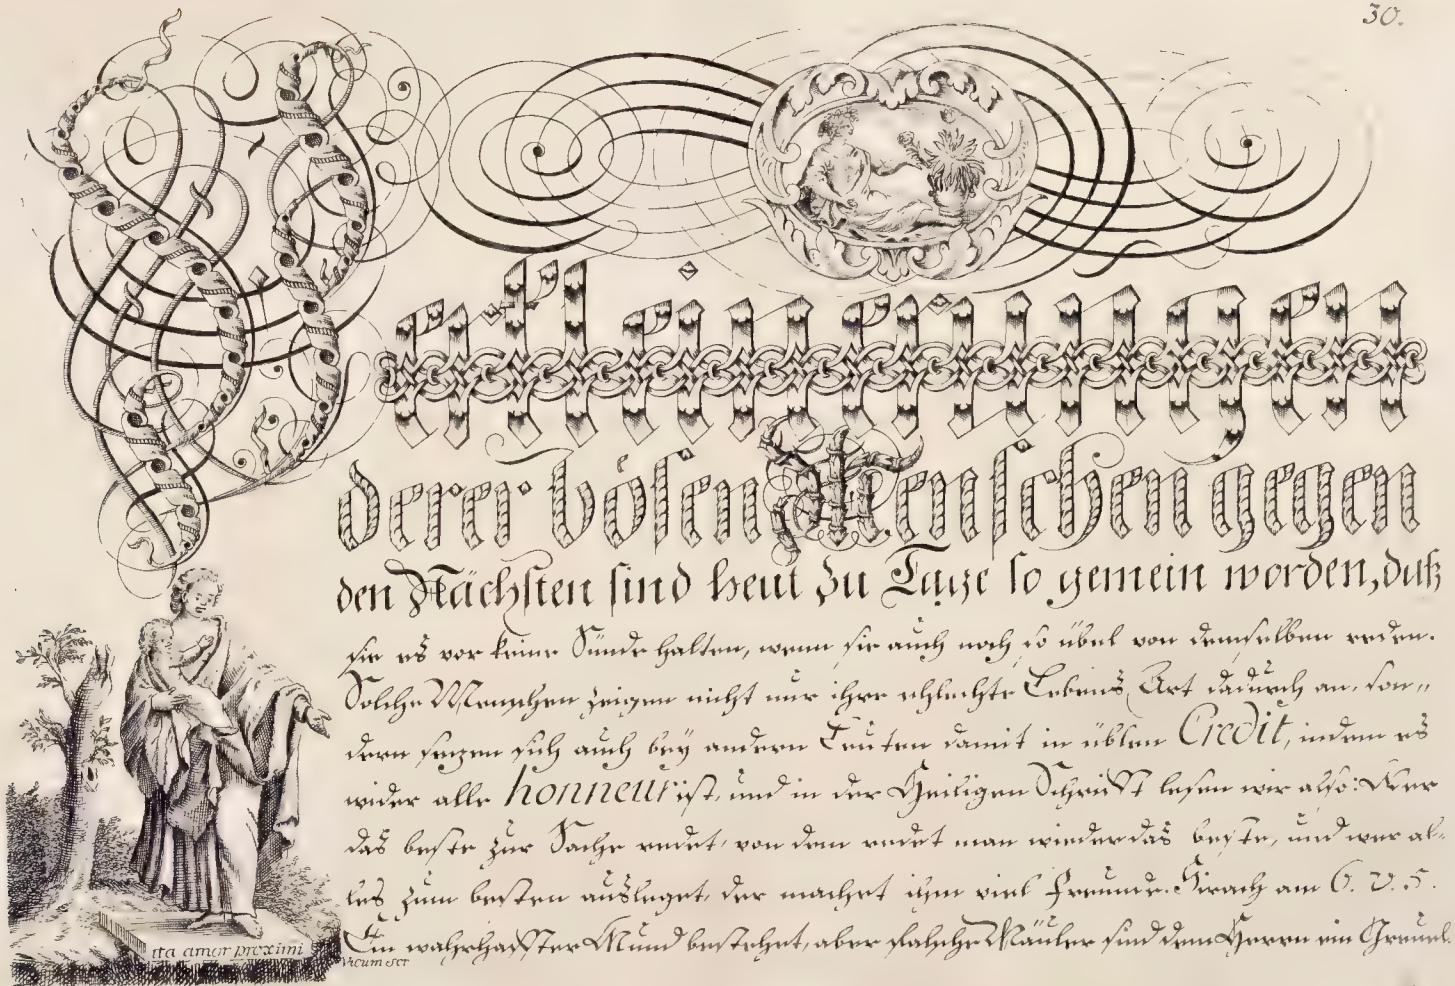 30.
Verkleinerungen
derer bösen Menschen gegen
den Nächsten sind heut zu Tage so gemein worden, daß
sie es vor keine Sünde halten, wenn sie auch noch so übel von demselben reden.
Solche Menschen zeigen nicht nur ihre schlechte Lebens Art dadurch an, son„
dern setzen sich auch bey andern Leuten damit in üblen Credit, indem es
wider alle honneur ist, und in der Heiligen Schrifft lesen wir also: Wer
das beste zur Sache redet, von dem redet man wieder das beste, und wer al-
les zum besten ausleget, der machet ihm viel Freunde. Sirach am 6. v. 5.
Ein wahrhaffter Mund bestehet, aber falsche Mäuler sind dem Herrn ein Greuel.
ita amor proximi